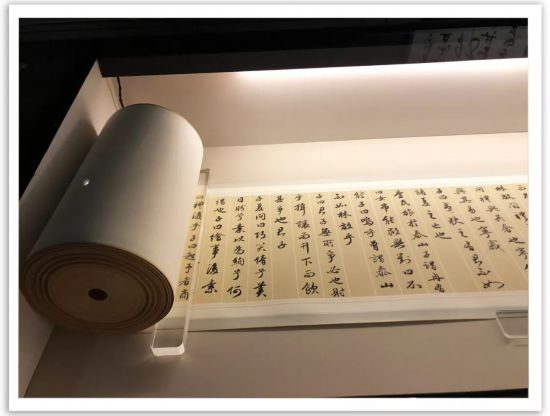 與其易也寧戚
子曰夷狄之有君不如
諸夏之亡也
季氏旅於泰山子謂冉有
曰女弗能救與對曰不
能子曰嗚乎曾謂泰山
不如林放乎
子曰君子無所爭必也射
乎揖讓而升下而飲
其爭也君子
子夏問曰巧笑倩兮美
目盼兮素以為絢兮何
謂也子曰繪事後素
曰禮後乎子曰起予者商